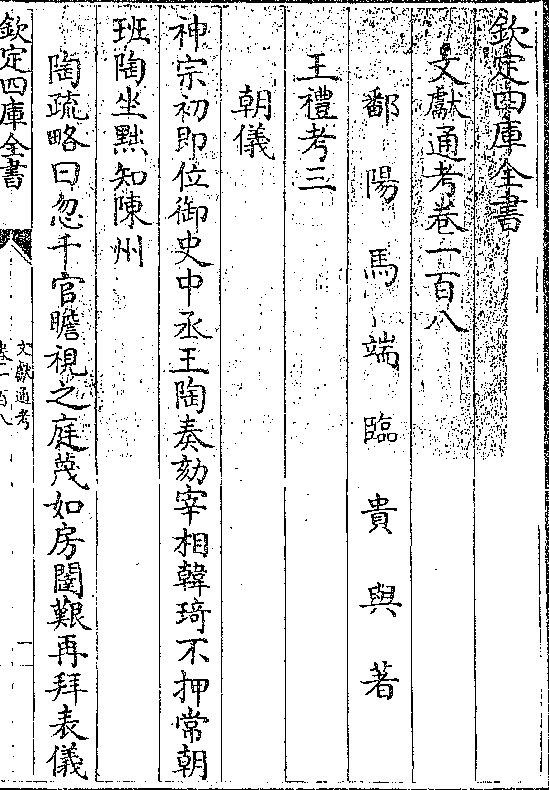 欽定四庫全書
文獻通考卷一百八
鄱陽馬端臨貴與著
王禮考三
朝儀
神宗初即位御史中丞王陶奏劾宰相韓琦不押常朝
班陶坐黜知陳州
陶疏略曰忽千官瞻視之庭蔑如房闥艱再拜表儀
欽定四庫全書
文獻通考
卷一百八
一